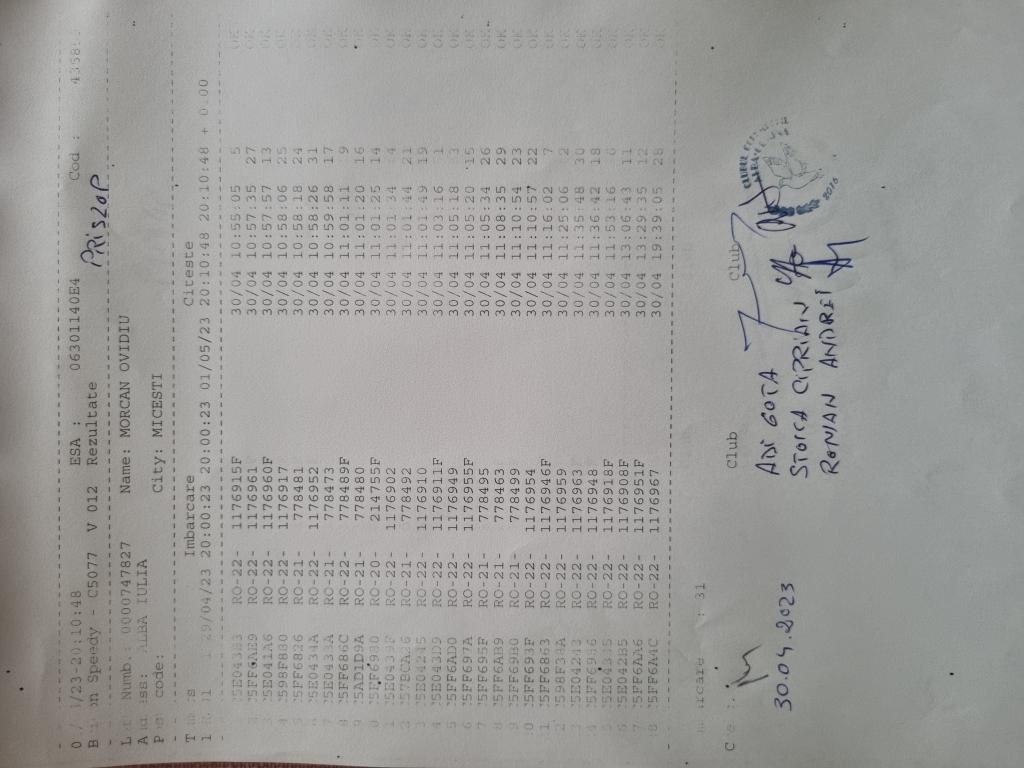 /23-20:10:48 ESA : 06301140E4 Cod :
on Speedy - C5077 V 012 Rezultate PRISLOP
Numb.: 0000747827 Name: MORCAN OVIDIU
ALBA IULIA
code: City: MICESTI
Imbarcare Citeste
29/04/23 20:00:23 20:00:23 01/05/23 20:10:48 20:10:48 + 0.00
RO-22- 1176915F 30/04 10:55:05 5
25FF6AE9 RO-22- 1176961 30/04 10:57:35 27
25E041A6 RO-22- 1176960F 30/04 10:57:57 13
2598F830 RO-22- 1176917 30/04 10:58:06 25
25FF6826 RO-21- 778481 30/04 10:58:18 24
25E0434A RO-22- 1176952 30/04 10:58:26 31
25E0433A RO-21- 778473 30/04 10:59:58 17
25FF686C RO-22- 778489F 30/04 11:01:11 9
25AD1D9A RO-21- 778480 30/04 11:01:20 16
RO-20- 214755F 30/04 11:01:25 14
RO-22- 1176902 30/04 11:01:34 4
RO-21- 778492 30/04 11:01:44 21
25E04245 RO-22- 1176910 30/04 11:01:49 19
25E043D9 RO-22- 1176911F 30/04 11:03:16 1
25FF6AD0 RO-22- 1176949 30/04 11:05:18 3
25FF697A RO-22- 1176955F 30/04 11:05:20 15
25FF695F RO-21- 778495 30/04 11:05:34 26
25FF6AB9 RO-21- 778463 30/04 11:08:35 29
25FF69B0 RO-21- 778499 30/04 11:10:54 23
25FF693F RO-22- 1176954 30/04 11:10:57 22
25FF6863 RO-22- 1176946F 30/04 11:16:02 7
RO-22- 1176959 30/04 11:25:06 2
25E04243 RO-22- 1176963 30/04 11:35:48 30
RO-22- 1176948 30/04 11:36:42 18
RO-22- 1176918F 30/04 11:53:16 6
25E042B5 RO-22- 1176908F 30/04 13:06:43 11
25FF6AA6 RO-22- 1176951F 30/04 13:29:35 12
25FF6A4C RO-22- 1176967 30/04 19:39:05 28
: 31
Club Club
ADI GOTA
30.04.2023 STOICA CIPRIAN
ROMAN ANDREI
2016